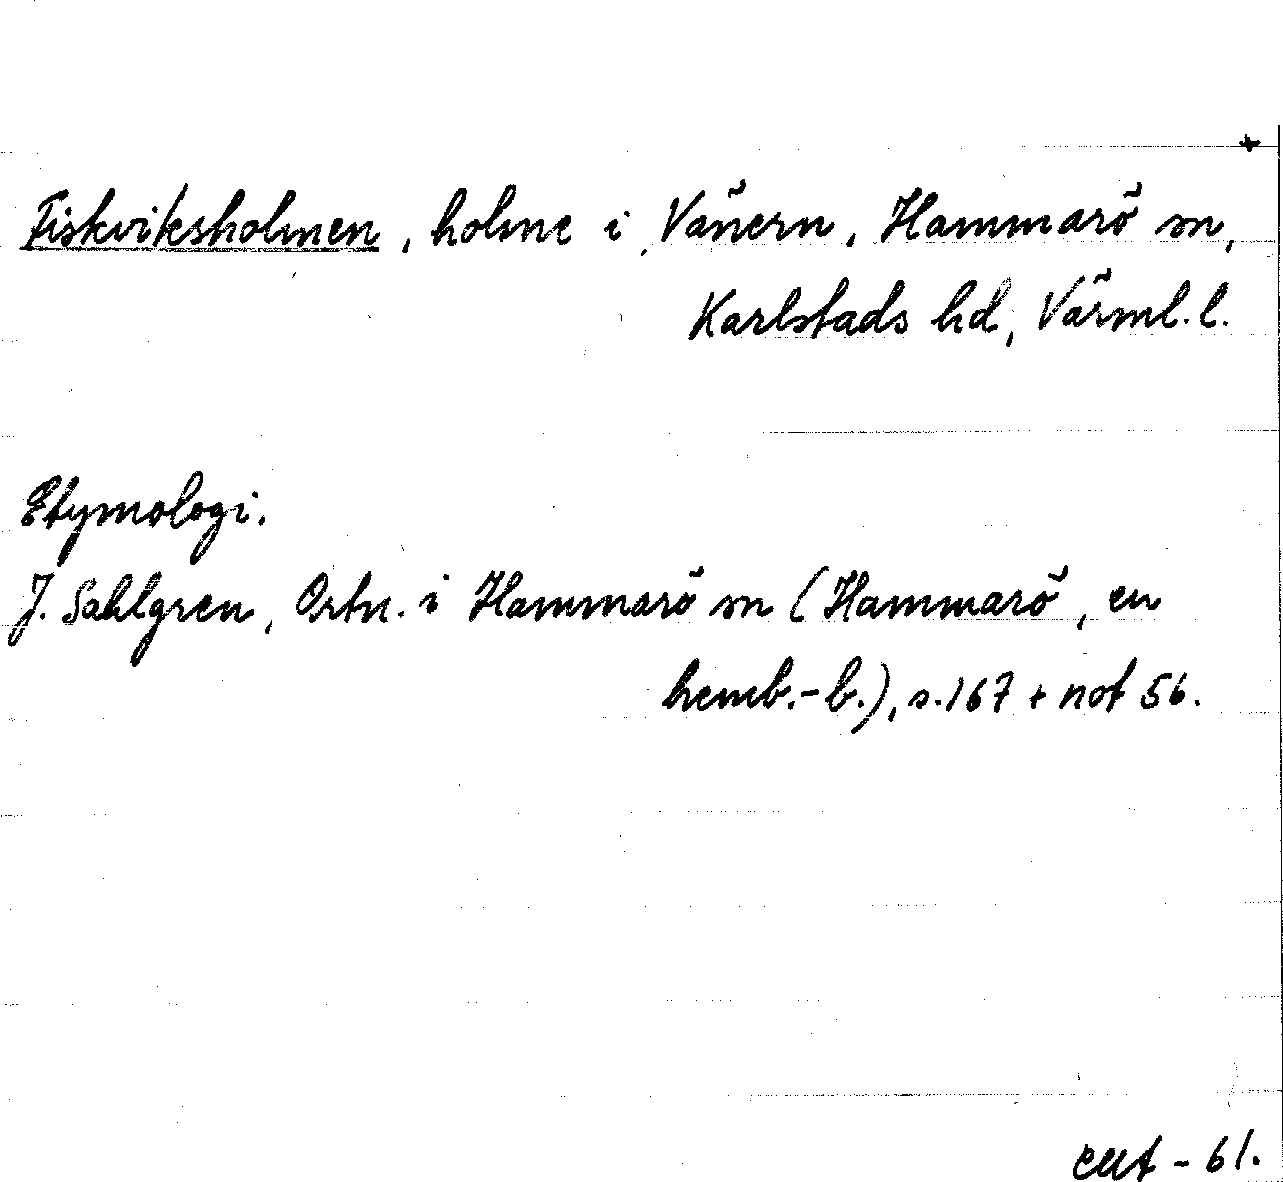 +
Fiskviksholmen, holme i Vänern, Hammarö sn,
Karlstads hd, Värml. l.
Etymologi.
J. Sahlgren, Ortn. i Hammarö sn (Hammarö, en
hemb.-b.), s. 167 + not 56.
- 61.